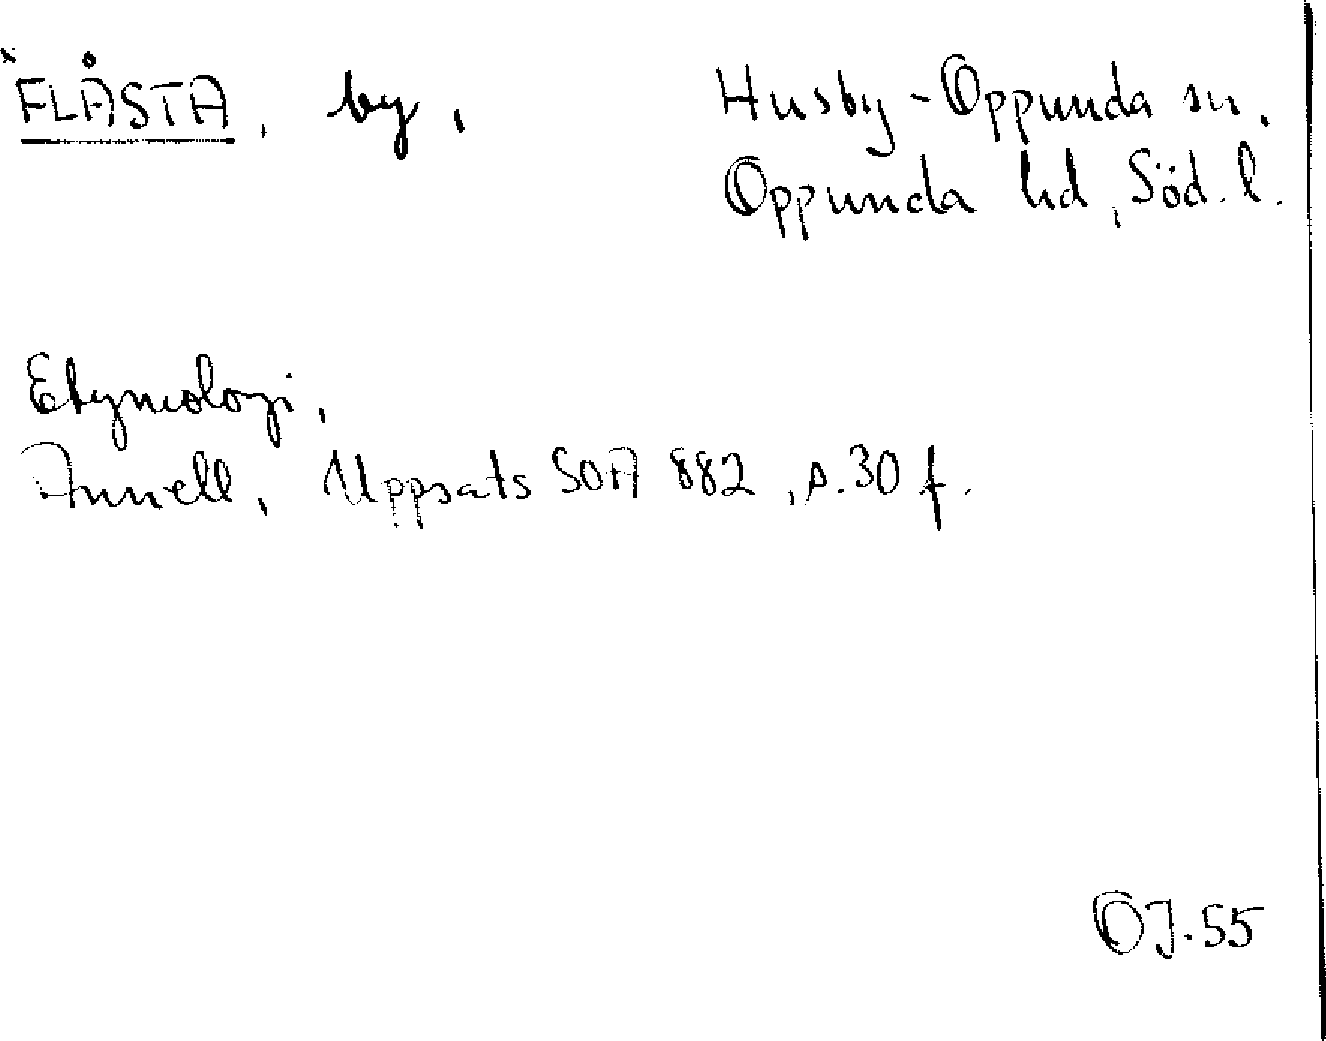 x FLÅSTA, by, Husby-Oppunda sn.
Oppunda hd, Söd. l.
Etymologi,
Annell, Uppsats SOA 882, s. 30 f.
OJ. 55